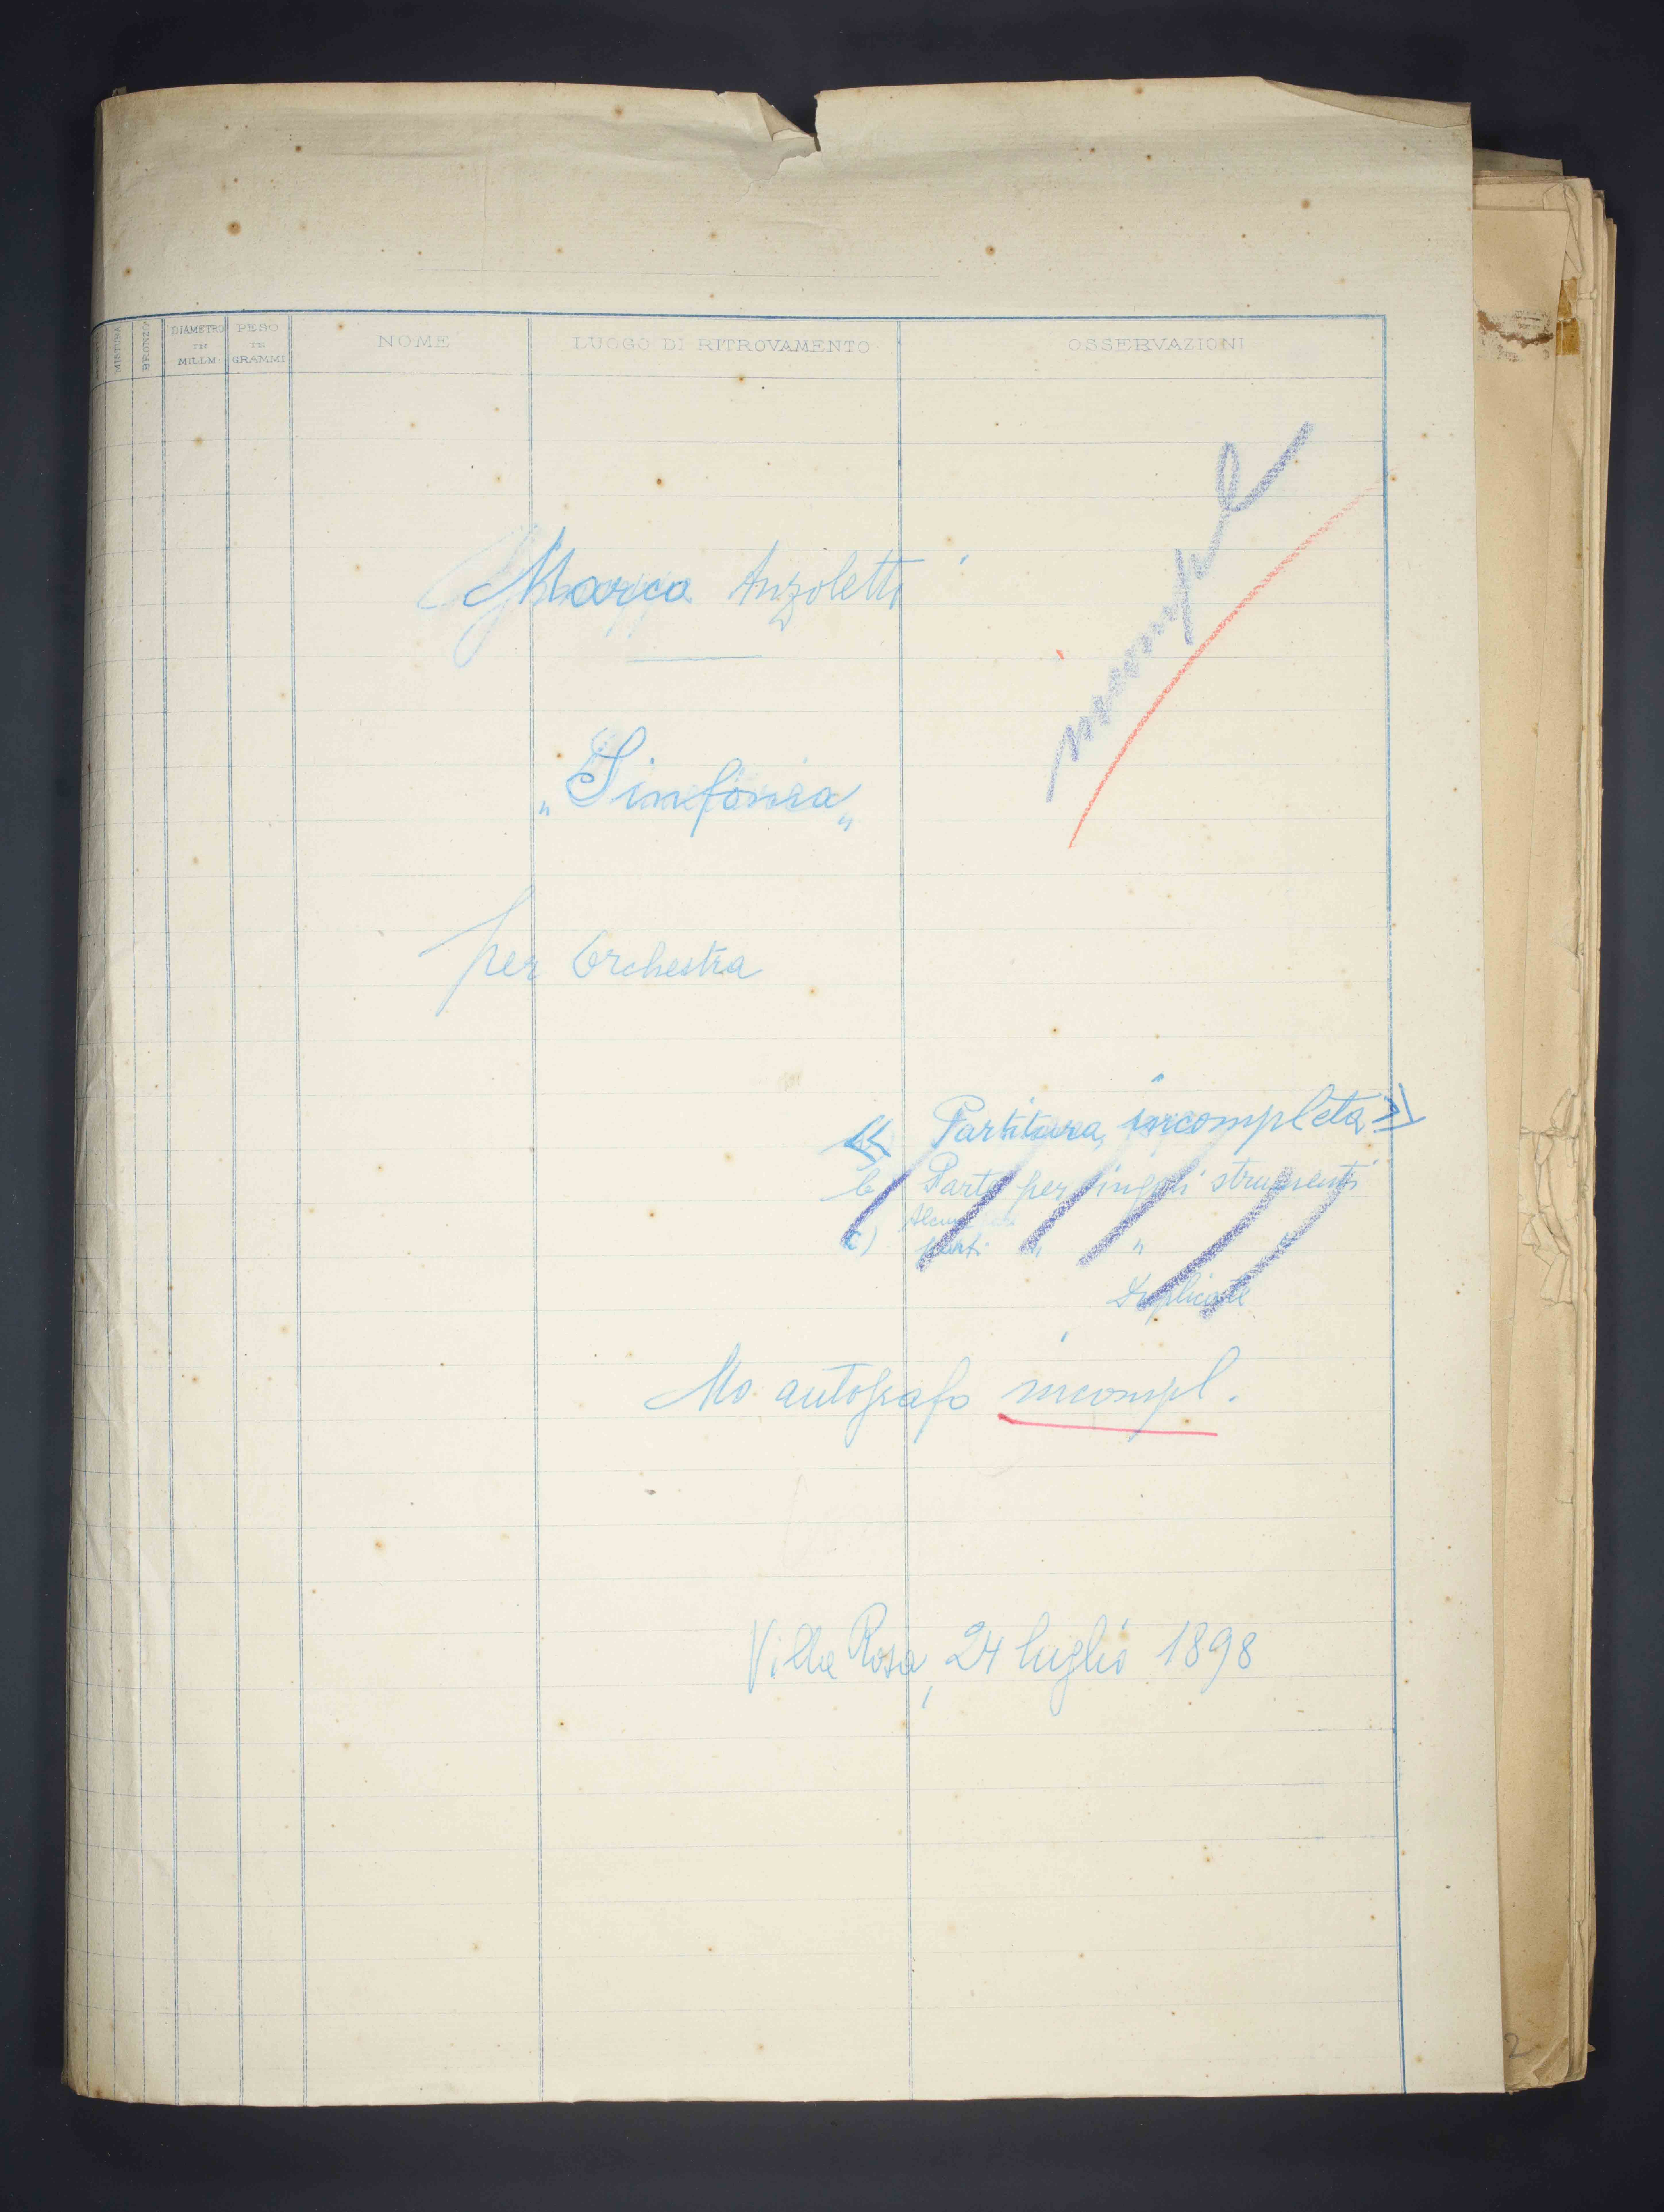 MISTURA
BRONZO
DIAMETRO IN MILLM.
PESO IN GRAMMI
NOME
LUOGO DI RITROVAMENTO
OSSERVAZIONI
incompl
Marco Anzoletti
"Sinfonia"
per Orchestra
« Partitura, incompleta »
b Parti per singoli strumenti
c) Alcune
parti " "
Duplicate
Ms. autografo incompl.
Villa Rosa, 24 luglio 1898
2